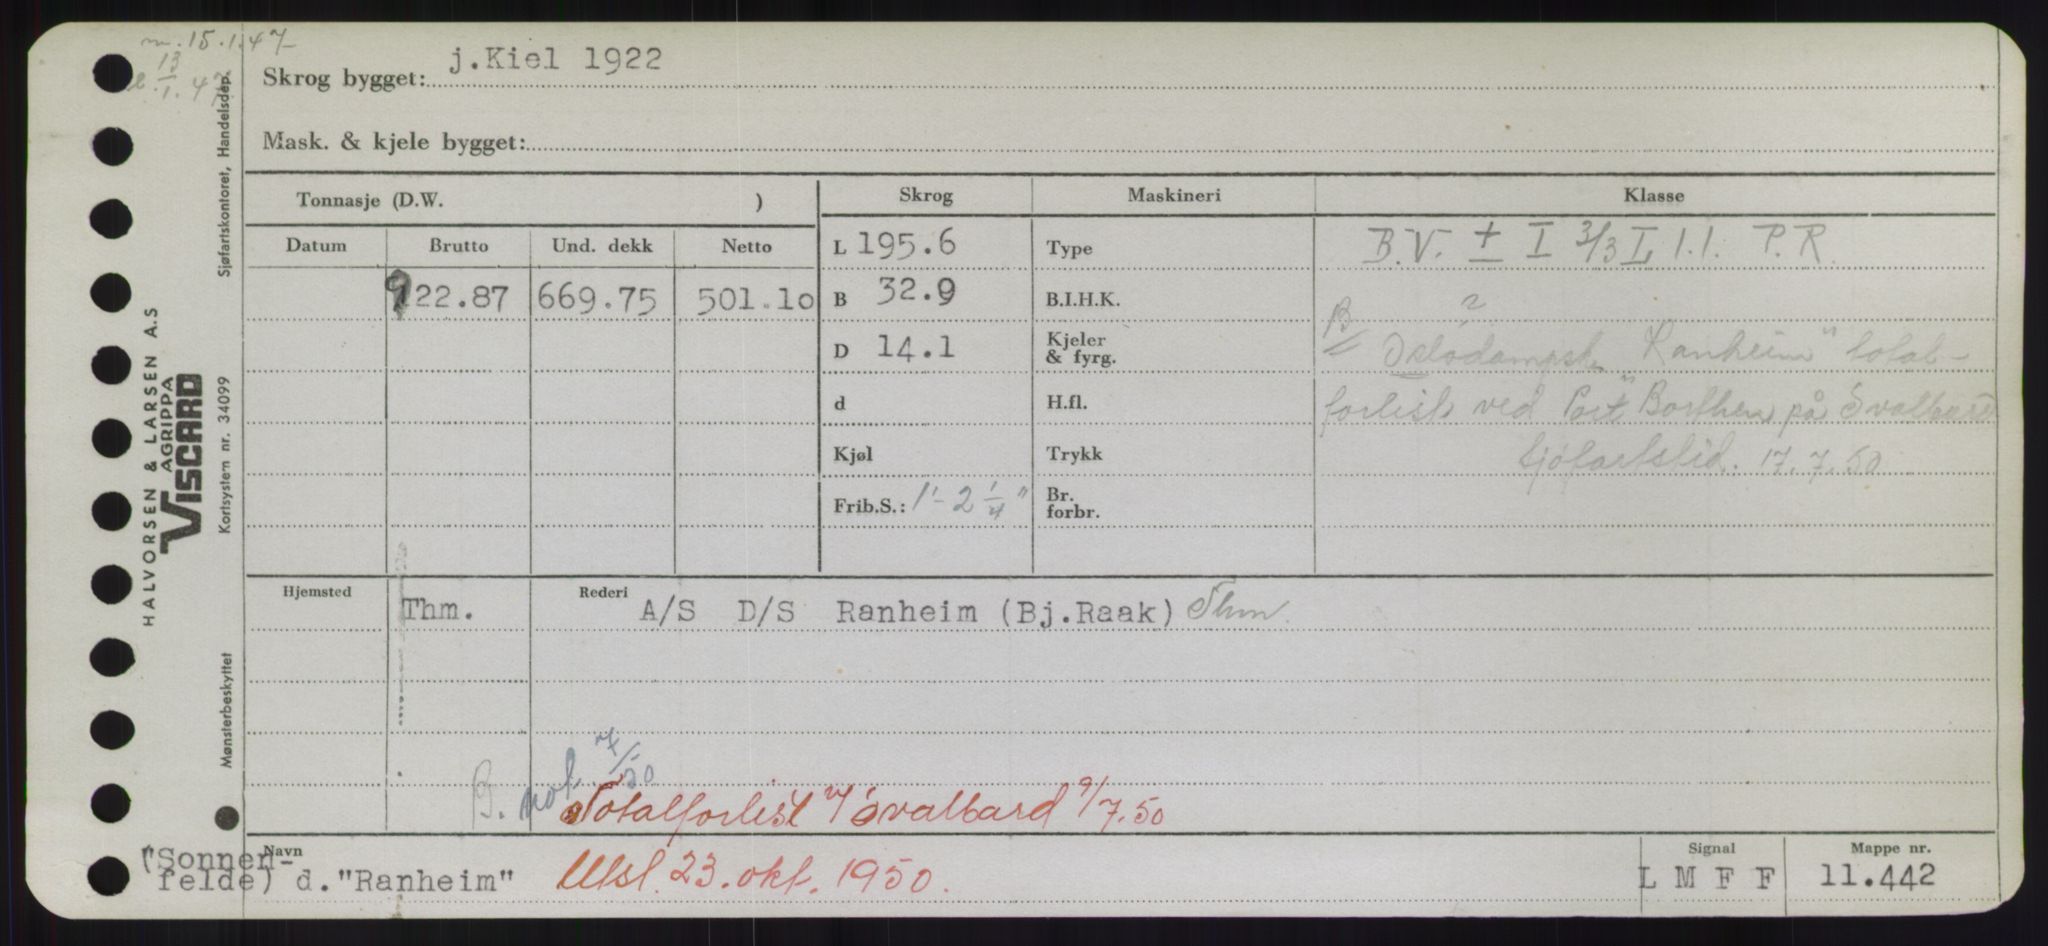 m. 15.1.47
13
1. 47
Skrog bygget: j.Kiel 1922
Mask. & kjele bygget:
Tonnasje (D.W. )
Skrog
Maskineri
Klasse
Datum Brutto Und. dekk Netto
L 195.6
Type
B.V. ± I 3/3 L 1.1. P.R.
922.87 669.75 501.10
B 32.9
B.I.H.K.
D 14.1
Kjeler
& fyrg.
B
Oslodampsk. "Ranheim" total-
d
H.fl.
forlist ved Port Borthen på Svalbard
Kjøl
Trykk
Sjöfartstid. 17.7.50
Frib.S.: 1'-2 1/4"
Br.
forbr.
Hjemsted Rederi
Thm. A/S D/S Ranheim (Bj.Raak) Thm.
B. not. 7/50
Totalforlist v/Svalbard 9/7.50
Navn
("Sonnen-
felde) d."Ranheim" Utsl. 23. okt. 1950.
Signal
L M F F
Mappe nr.
11.442
Sjøfartskontoret, Handelsdep.
Kortsystem nr. 34099
Mønsterbeskyttet
HALVORSEN & LARSEN A.S
AGRIPPA
VISCARD